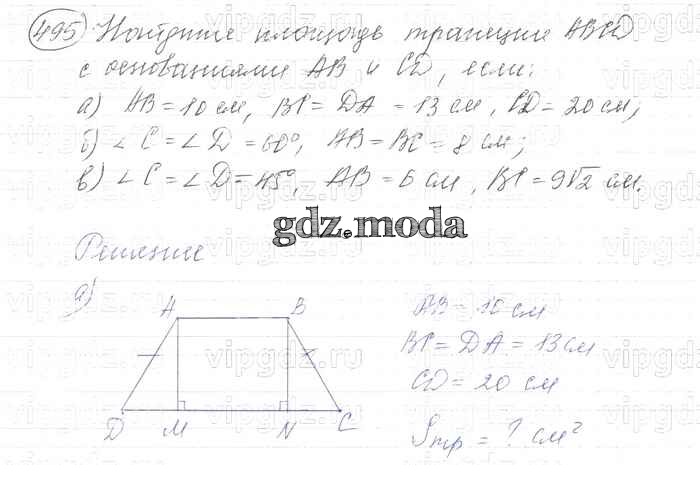 495 Найдите площадь трапеции ABCD
с основаниями AB и CD, если:
а) AB = 10 см, BC = DA = 13 см, CD = 20 см;
б) ∠C = ∠D = 60°, AB = BC = 8 см;
в) ∠C = ∠D = 45°, AB = 6 см, BC = 9√2 см.
gdz.moda
Решение
а)
A B
AB = 10 см
BC = DA = 13 см
CD = 20 см
D M N C
Sтр = ? см²
vipgdz.ru